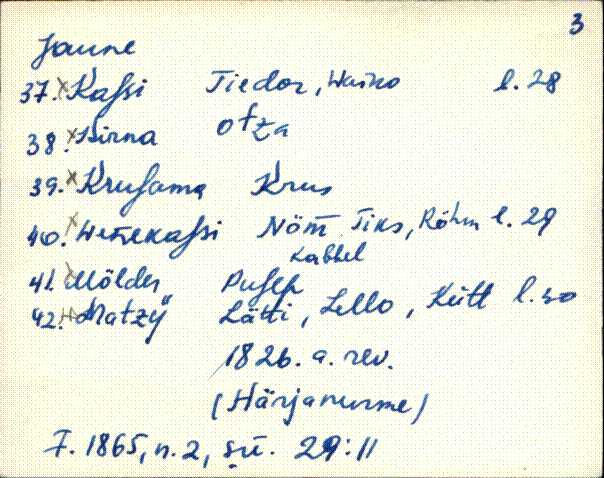 3
Jaune
37. x Kassi Tiedor, Waino l. 28
38. x Hirna Otza
39. x Krusama Krus
40. x Wennekassi Nöm̅, Tiks, Röhm l. 29
Kabbel
41. x Mölder Pusep
42. Matzÿ Lätti, Lello, Keitt l. 30
1826. a. rev.
(Härjanurme)
F. 1865, n. 2, sü. 29:11